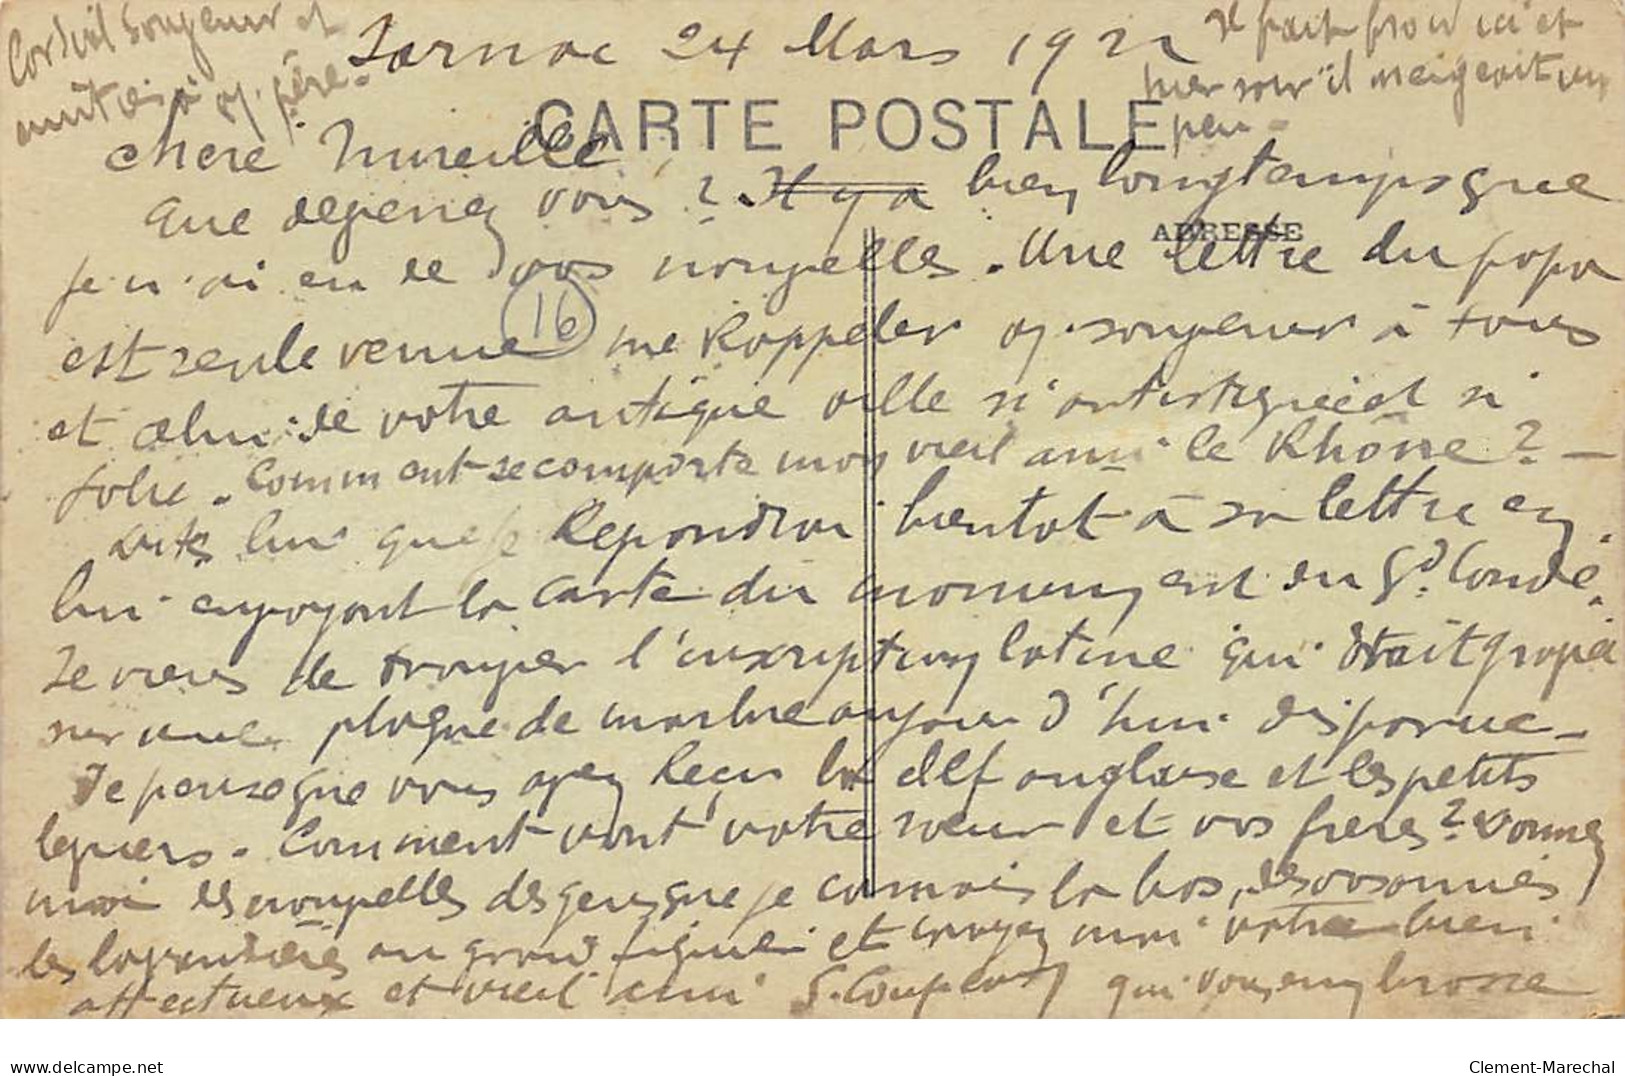 Cordial souvenir et
amitiés à vos père.
Jarnac 24 Mars 1922
Il fait froid ici et
hier soir il neigeait un
peu.
CARTE POSTALE
Chère Mireille
Que devenez vous ? Il y a bien longtemps que
ADRESSE
je n'ai eu de vos nouvelles. Une lettre du papa
16
est seule venue me Rappeler vos souvenir à tous
et celui de votre antique ville si artistique et si
jolie. Comment se comporte mon vieil ami le Rhône ? —
Dites lui que je Repondrai bientot à sa lettre en
lui envoyant la carte du monument du Gd Condé.
Je viens de trouver l'inscription latine qui était gravée
sur une plaque de marbre aujourd'hui disparue —
Je pense que vous avez Recu la clef anglaise et les petits
leviers. Comment vont votre sœur et vos freres ? Donnez
moi des nouvelles des gens que je connais la bas,
les lavandières au grand et croyez moi votre bien
affectueux et vieil ami qui vous embrasse
Clement-Marechal
delcampe.net